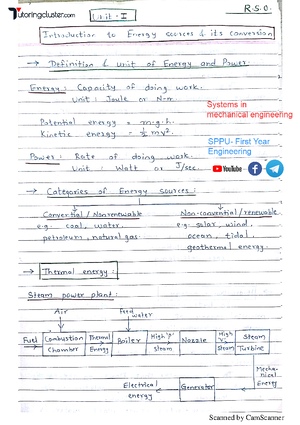 Tutoringcluster.com
R.S.O.
Unit - I
Introduction to Energy sources & its conversion
→ Definition & unit of Energy and Power:
Energy: Capacity of doing work.
Unit: Joule or N-m.
Systems in
mechanical engineering
Potential energy = m.g.h.
Kinetic energy = ½mv².
SPPU- First Year
Engineering
Power: Rate of doing work.
Unit: Watt or J/sec.
YouTube
→ Categories of Energy sources:
Convential / Nonrenewable
Non-convential / renewable
e.g. coal, water,
petroleum, natural gas.
e.g. solar, wind,
ocean, tidal,
geothermal energy.
→ Thermal energy:
Steam power plant:
Air
Feed water
Fuel
Combustion Chamber
Thermal Energy
Boiler
High 'p' Steam
Nozzle
High 'v' Steam
Steam Turbine
Mechanical Energy
Generator
Electrical energy
Scanned by CamScanner